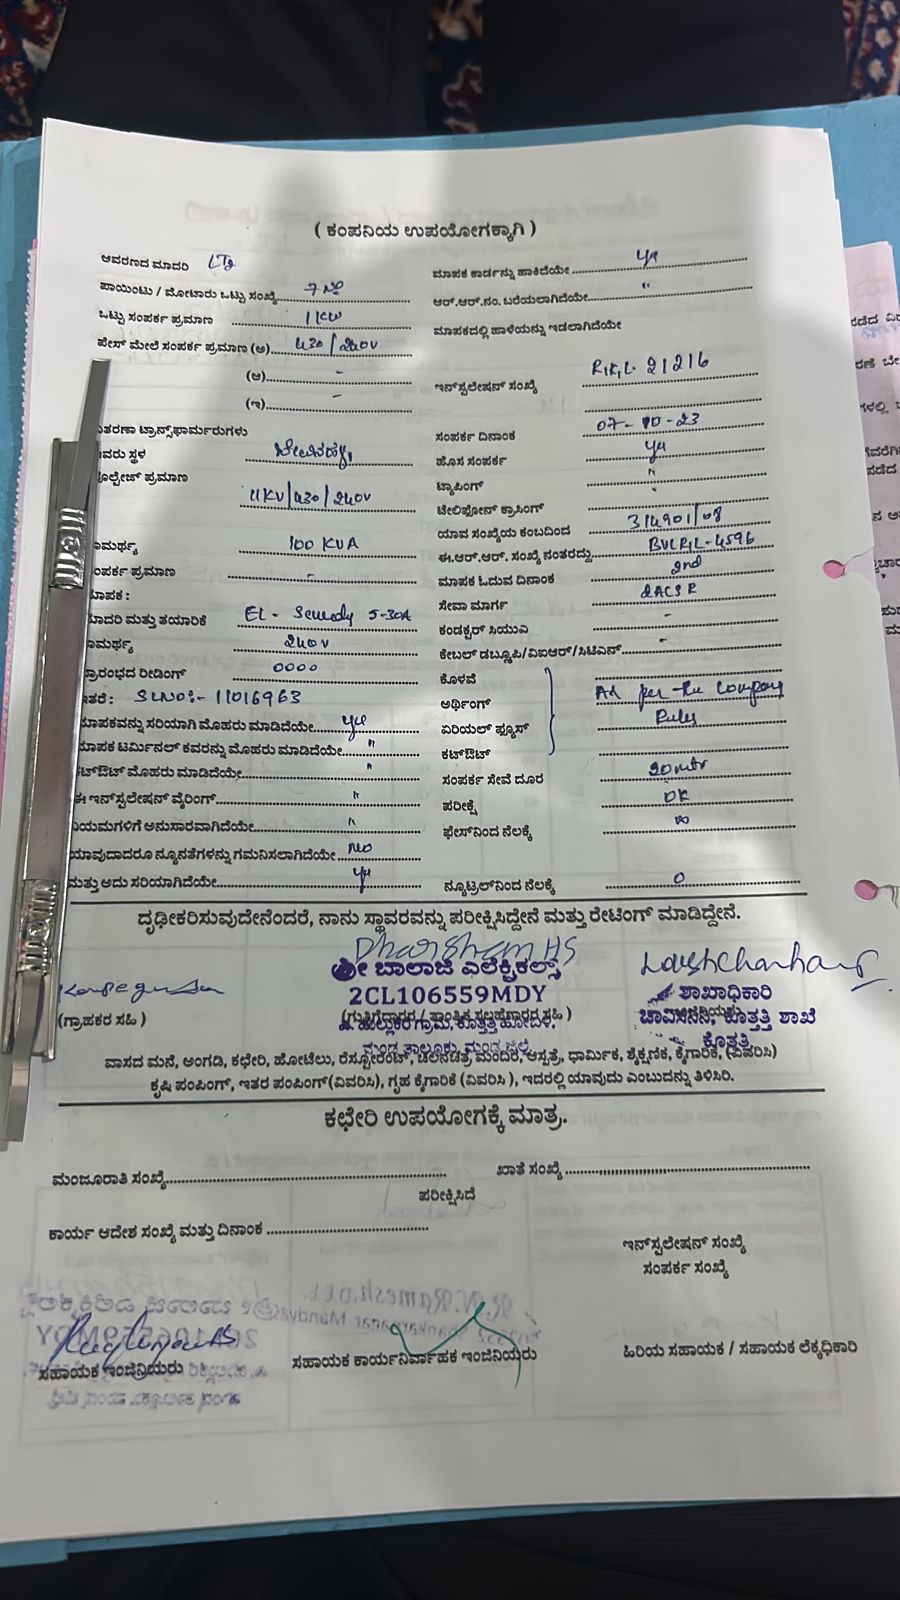 ( ಕಂಪನಿಯ ಉಪಯೋಗಕ್ಕಾಗಿ )
ಆವರಣದ ಮಾದರಿ
ಪಾಯಿಂಟು / ಮೋಟಾರು ಒಟ್ಟು ಸಂಖ್ಯೆ 7 No
ಒಟ್ಟು ಸಂಪರ್ಕ ಪ್ರಮಾಣ 1 KW
ಪೇಸ್ ಮೇಲೆ ಸಂಪರ್ಕ ಪ್ರಮಾಣ (ಅ) 430 / 240V
(ಆ) -
(ಇ) -
ತರಣಾ ಟ್ರಾನ್ಸ್‌ಫಾರ್ಮರುಗಳು
ವರು ಸ್ಥಳ
ಲ್ಟೇಜ್ ಪ್ರಮಾಣ
11KV/430/240V
ಾಮರ್ಥ್ಯ 100 KVA
ಂಪರ್ಕ ಪ್ರಮಾಣ -
ಾಪಕ :
ಾದರಿ ಮತ್ತು ತಯಾರಿಕೆ EL - 5-30A
ಾಮರ್ಥ್ಯ 240V
್ರಾರಂಭದ ರೀಡಿಂಗ್ 0000
ತರೆ : SLNO:- 11016963
ಮಾಪಕವನ್ನು ಸರಿಯಾಗಿ ಮೊಹರು ಮಾಡಿದೆಯೇ yes
ಮಾಪಕ ಟರ್ಮಿನಲ್ ಕವರನ್ನು ಮೊಹರು ಮಾಡಿದೆಯೇ "
ಕಟ್‌ಔಟ್ ಮೊಹರು ಮಾಡಿದೆಯೇ "
ಈ ಇನ್‌ಸ್ಟಲೇಷನ್ ವೈರಿಂಗ್ "
ನಿಯಮಗಳಿಗೆ ಅನುಸಾರವಾಗಿದೆಯೇ "
ಯಾವುದಾದರೂ ನ್ಯೂನತೆಗಳನ್ನು ಗಮನಿಸಲಾಗಿದೆಯೇ No
ಮತ್ತು ಅದು ಸರಿಯಾಗಿದೆಯೇ yes
ಮಾಪಕ ಕಾರ್ಡನ್ನು ಹಾಕಿದೆಯೇ yes
ಆರ್.ಆರ್.ನಂ. ಬರೆಯಲಾಗಿದೆಯೇ "
ಮಾಪಕದಲ್ಲಿ ಹಾಳೆಯನ್ನು ಇಡಲಾಗಿದೆಯೇ
ಇನ್‌ಸ್ಟಲೇಷನ್ ಸಂಖ್ಯೆ 21216
ಸಂಪರ್ಕ ದಿನಾಂಕ 07-10-23
ಹೊಸ ಸಂಪರ್ಕ yes
ಟ್ಯಾಪಿಂಗ್ "
ಟೆಲಿಫೋನ್ ಕ್ರಾಸಿಂಗ್ "
ಯಾವ ಸಂಖ್ಯೆಯ ಕಂಬದಿಂದ 314901/08
ಈ.ಆರ್.ಆರ್. ಸಂಖ್ಯೆ ನಂತರದ್ದು
ಮಾಪಕ ಓದುವ ದಿನಾಂಕ 2nd
ಸೇವಾ ಮಾರ್ಗ 2ACSR
ಕಂಡಕ್ಟರ್ ಸಿಯುವಿ -
ಕೇಬಲ್ ಡಬ್ಲೂಪಿ/ವಿಐಆರ್/ಸಿಟಿಎಸ್ -
ಕೊಳವೆ
ಅರ್ಥಿಂಗ್ As per the Company
ಏರಿಯಲ್ ಫ್ಯೂಸ್ Rules
ಕಟ್‌ಔಟ್
ಸಂಪರ್ಕ ಸೇವೆ ದೂರ 20mtr
ಪರೀಕ್ಷೆ OK
ಫೇಸ್‌ನಿಂದ ನೆಲಕ್ಕೆ ∞
ನ್ಯೂಟ್ರಲ್‌ನಿಂದ ನೆಲಕ್ಕೆ 0
ದೃಢೀಕರಿಸುವುದೇನೆಂದರೆ, ನಾನು ಸ್ಥಾವರವನ್ನು ಪರೀಕ್ಷಿಸಿದ್ದೇನೆ ಮತ್ತು ರೇಟಿಂಗ್ ಮಾಡಿದ್ದೇನೆ.
ಶ್ರೀ ಬಾಲಾಜಿ ಎಲೆಕ್ಟ್ರಿಕಲ್ಸ್
2CL106559MDY
(ಗ್ರಾಹಕರ ಸಹಿ )
ಶಾಖಾಧಿಕಾರಿ
ಚಾವಿಸನಿನಿ, ಕೊತ್ತತ್ತಿ ಶಾಖೆ
ಕೊತ್ತತ್ತಿ
ವಾಸದ ಮನೆ, ಅಂಗಡಿ, ಕಛೇರಿ, ಹೋಟೆಲು, ರೆಸ್ಟೋರೆಂಟ್, ಚಲನಚಿತ್ರ ಮಂದಿರ, ಆಸ್ಪತ್ರೆ, ಧಾರ್ಮಿಕ, ಶೈಕ್ಷಣಿಕ, ಕೈಗಾರಿಕೆ, (ವಿವರಿಸಿ)
ಕೃಷಿ ಪಂಪಿಂಗ್, ಇತರ ಪಂಪಿಂಗ್(ವಿವರಿಸಿ), ಗೃಹ ಕೈಗಾರಿಕೆ (ವಿವರಿಸಿ ), ಇದರಲ್ಲಿ ಯಾವುದು ಎಂಬುದನ್ನು ತಿಳಿಸಿರಿ.
ಕಛೇರಿ ಉಪಯೋಗಕ್ಕೆ ಮಾತ್ರ.
ಮಂಜೂರಾತಿ ಸಂಖ್ಯೆ
ಖಾತೆ ಸಂಖ್ಯೆ
ಪರೀಕ್ಷಿಸಿದೆ
ಕಾರ್ಯ ಆದೇಶ ಸಂಖ್ಯೆ ಮತ್ತು ದಿನಾಂಕ
ಇನ್‌ಸ್ಟಲೇಷನ್ ಸಂಖ್ಯೆ
ಸಂಪರ್ಕ ಸಂಖ್ಯೆ
ಸಹಾಯಕ ಇಂಜಿನಿಯರು
ಸಹಾಯಕ ಕಾರ್ಯನಿರ್ವಾಹಕ ಇಂಜಿನಿಯರು
ಹಿರಿಯ ಸಹಾಯಕ / ಸಹಾಯಕ ಲೆಕ್ಕಧಿಕಾರಿ